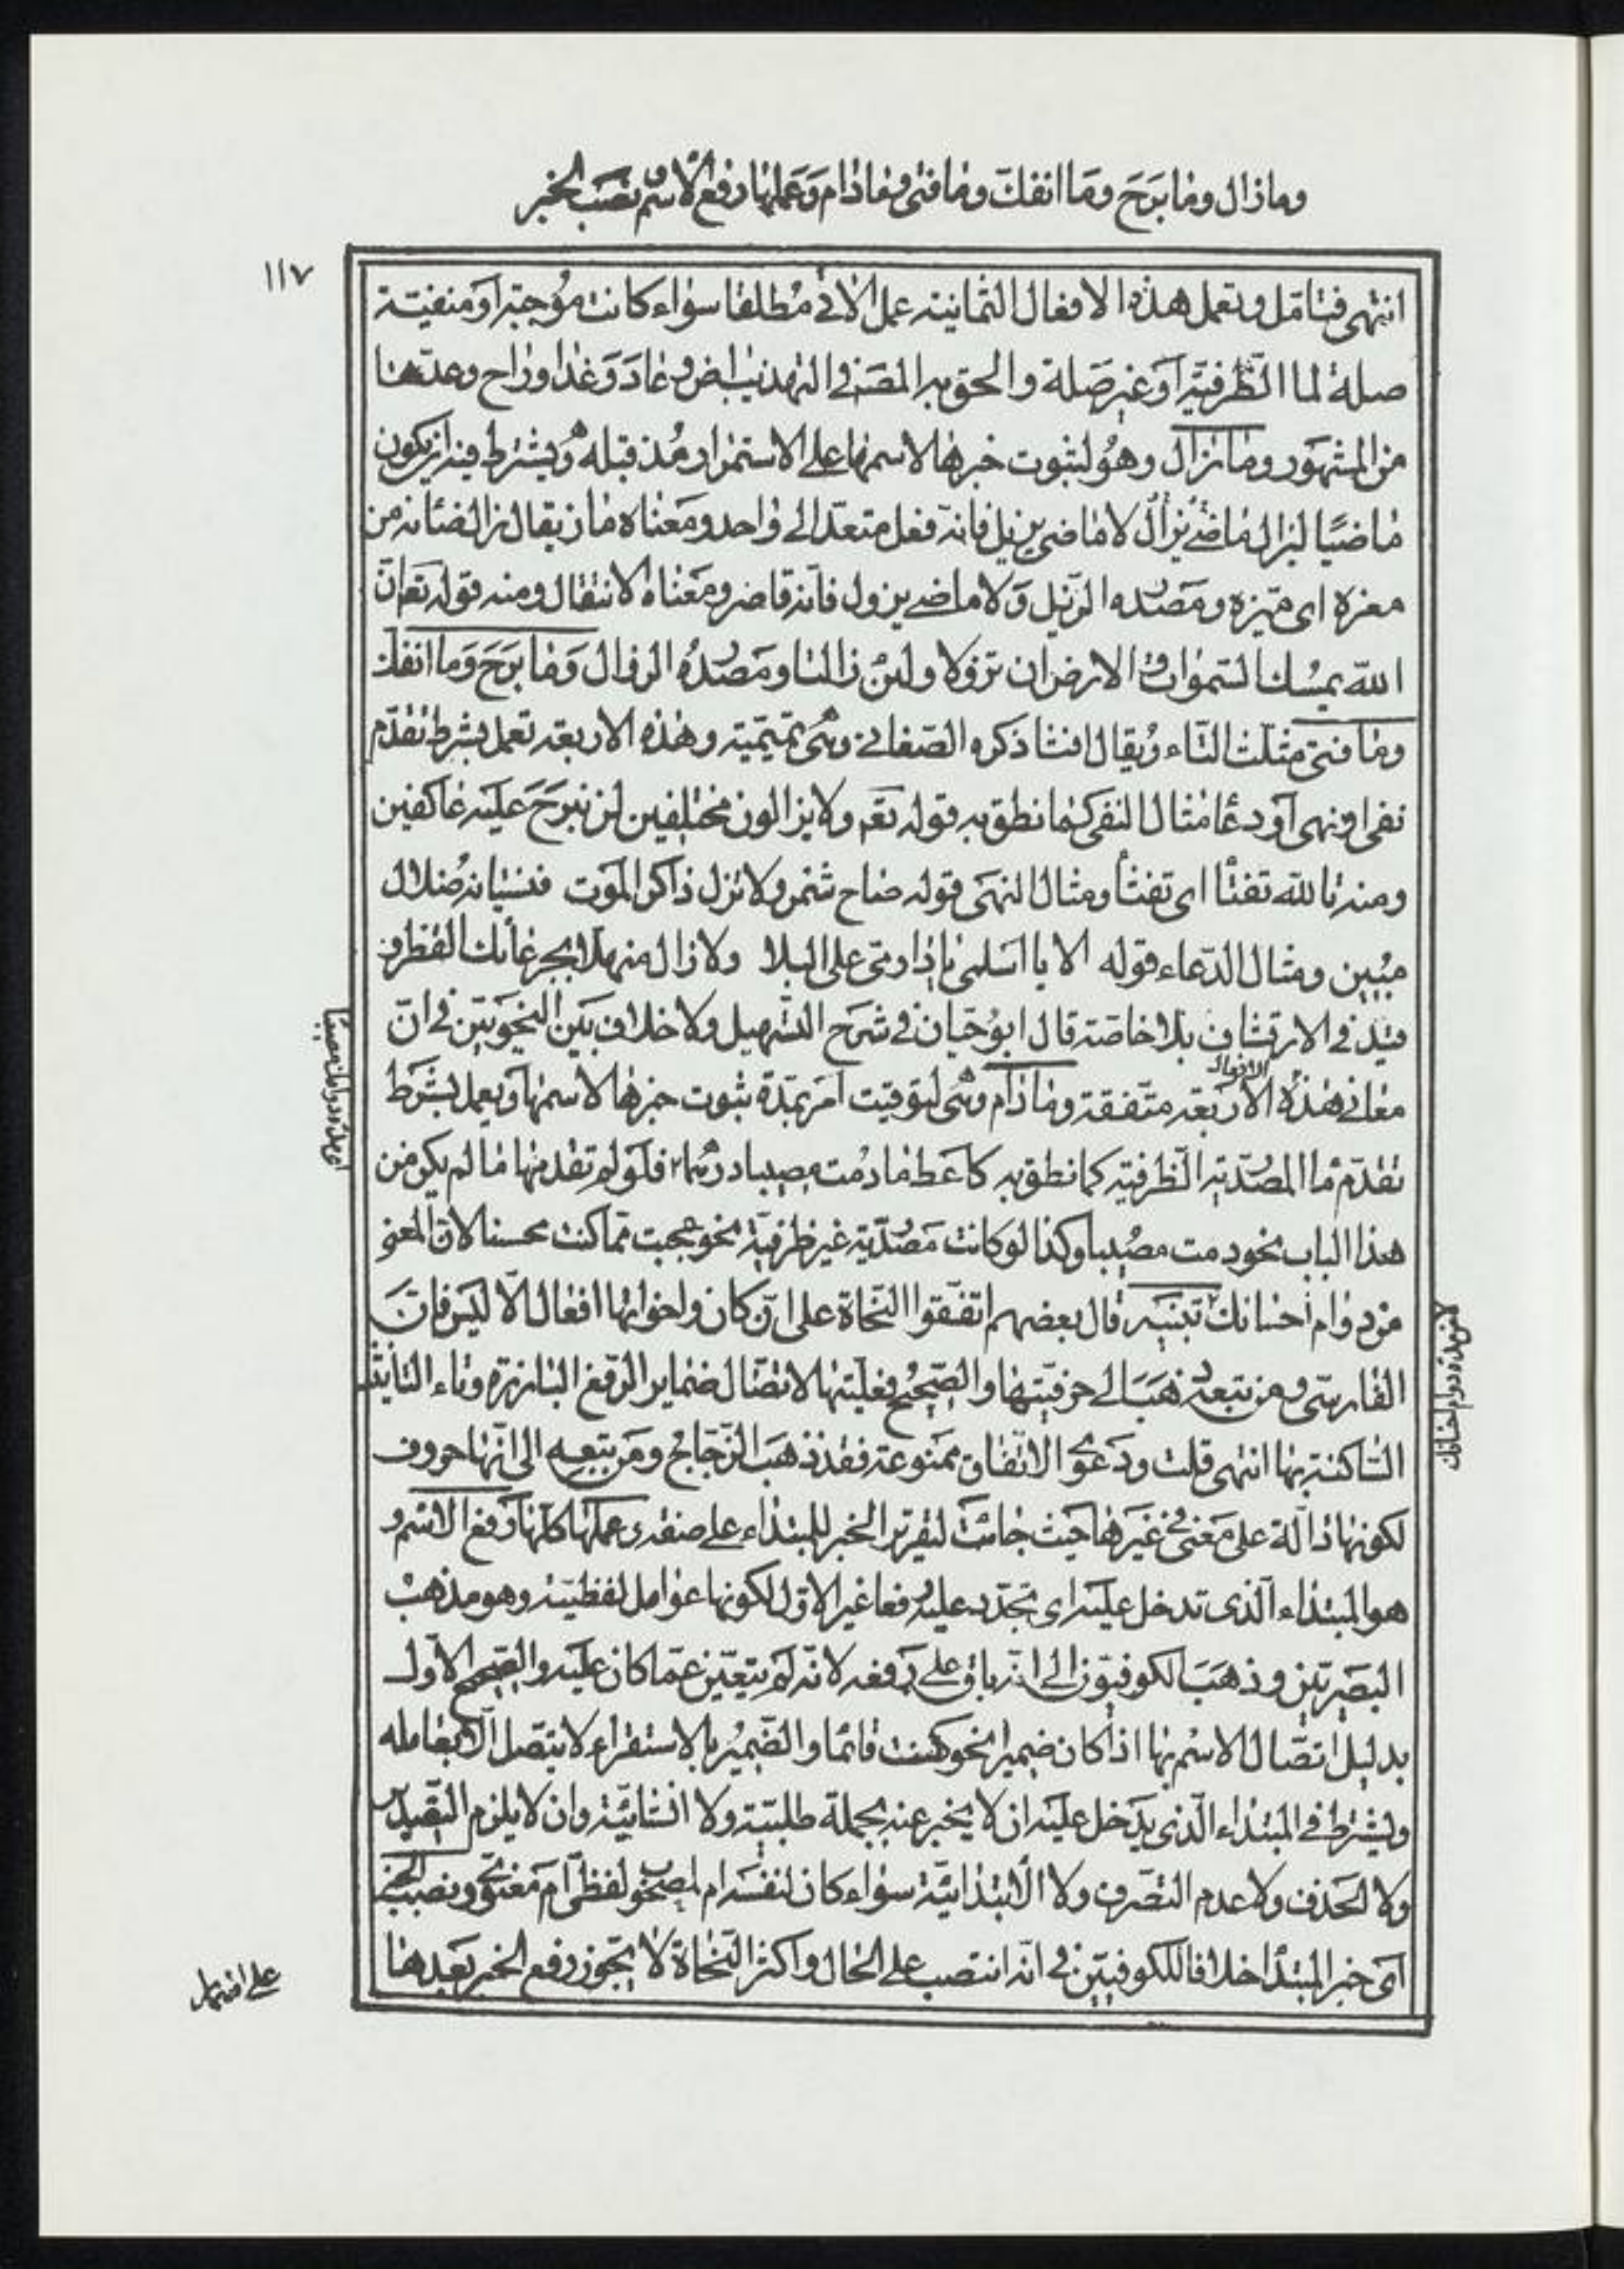 وما زال وما بَرَحَ وَمَا انفكّ وما فتئ وما دام وَعَملها رفع الاسم ونصَب الخبر
١١٧
انتهى فتامّل وتعمل هذه الافعال الثمانية عمل الاتى مُطلقا سواء كانت مُوجبة اَو منفيّة
صلةً لما الظّرفية اَو غير صَلة والحق بهٖ المصَنف فى التهذيب اٰض وعادَ وَغدا وراح وعدّها
من المشهَور وما زال وهُو لثبوت خبرها لاسمها على الاستمرار مُذ قبله ويشترط فيه ان يكون
ماضيًا ليزال ماضى يزال لا ماضى يزيل فانّه فعل متعدّ الى واحد ومَعناه ماز يقال زال ضانه من
معزه اى ميّزه ومَصدره الزّيل وَلا ماضى يزول فانّه قاصر ومَعناه الانتقال ومنه قوله تعَ انّ
اللّه يمسُك السّموات والارض ان تزولا ولئن زالتا ومَصدرُه الزوال وَما بَرَحَ وَما انفكّ
وما فتئ مثلّث التّاء ويُقال افتأ ذكره الصّغانى وهى تميميّة وهذه الاربعة تعمل بشرط تقدّم
نفى او نهى اَو دعا مثال النفى كما نطق به قوله تعَ ولا يزالون مختلفين لن نبرَحَ عليه عاكفين
ومنه تاللّه تفتأ اى تفتأ ومثال النهَى قوله صاح شمّر ولا تزل ذاكر الموَت فنسيانه ضلال
مبُين ومثال الدّعاء قوله الا يا اسَلمى يا دار مىّ على البلا ولا زال منهلا بجرعائك القطر
قيّد فى الارتشاف بلا خاصّة قال ابوُ حيّان فى شَرح التّسهيل ولا خلاف بَين النحويَين فى انّ
معانى هذه الافعال الاربَعة متّفقة وما دام وهى لتوقيت اَمر بمدّة ثبوت خبرها لاسمها ويعمل بشرط
تقدّم ما المصدريّة الظّرفية كما نطق به كاَعط ما دُمت مصيبا درهما فلَو لم تقدمها ما لم يكن من
هذا الباب نحو دمت مصُيبا وكذا لو كانت مَصدَريّة غير ظرفيّة نحو عجبت ممّا كنت محسنا لان المعنى
من دوام احسانك تنبيَه قال بعضهم اتفقوا النّحاة على انّ كان واخواتها افعال الّا ليَس فانّ
الفارسىّ ومن تبعه ذهَبَ الى حرفيّتها والصّحيح فعليتها لاتصال ضماير الرّفع البارزة وتاء التأنيث
السّاكنة بها انتهى قلت ودَعوى الاتّفاق ممَنوعة فقد ذهَب الزّجاجى ومَن تبعه الى انّها حروف
لكونها دالّة على مَعنى فى غَيرها حيَث جائت لتقرير الخبر للمبتداء على صفة وعملها كلّها رفع الاسم و
هو المبتداء الّذى تدخل عليَه اى تجدّد عليه رفعا غير الاوّل لكونها عوامل لفظيّة وهو مذهب
البَصريّين وذهَبَ الكوفيّون الى انّه باق على رَفعه لانّه لَم يتغيّر عمّا كان عليَه والصّحيح الاوّل
بدليل اتّصال الاسم بها اذا كان ضميرا نحو كنت قائما والضّمير بالاستقراء لا يتّصل الّا بعامله
ويشترط فى المبتداء الّذى يدَخل عليَه ان لا يخبر عنه بجملة طلبيّة ولا انشائيّة وان لا يلزم التّصدير
ولا الحَذف ولا عدم التصّرف ولا الاَبتدائيّة سواء كان لنفسَه ام لمصحوب لفظىّ اَم مَعنوىّ ونصب الخبر
اَى خبر المبتدأ خلافا للكوفيّين فى انّه انتصب على الحال واكثر النّحاة لا يجَوز رفع الخبر بعَدها
الافعال
اى مدّة دوامك مصيبًا
لا من مدّة دوام احسانك
على اضمار